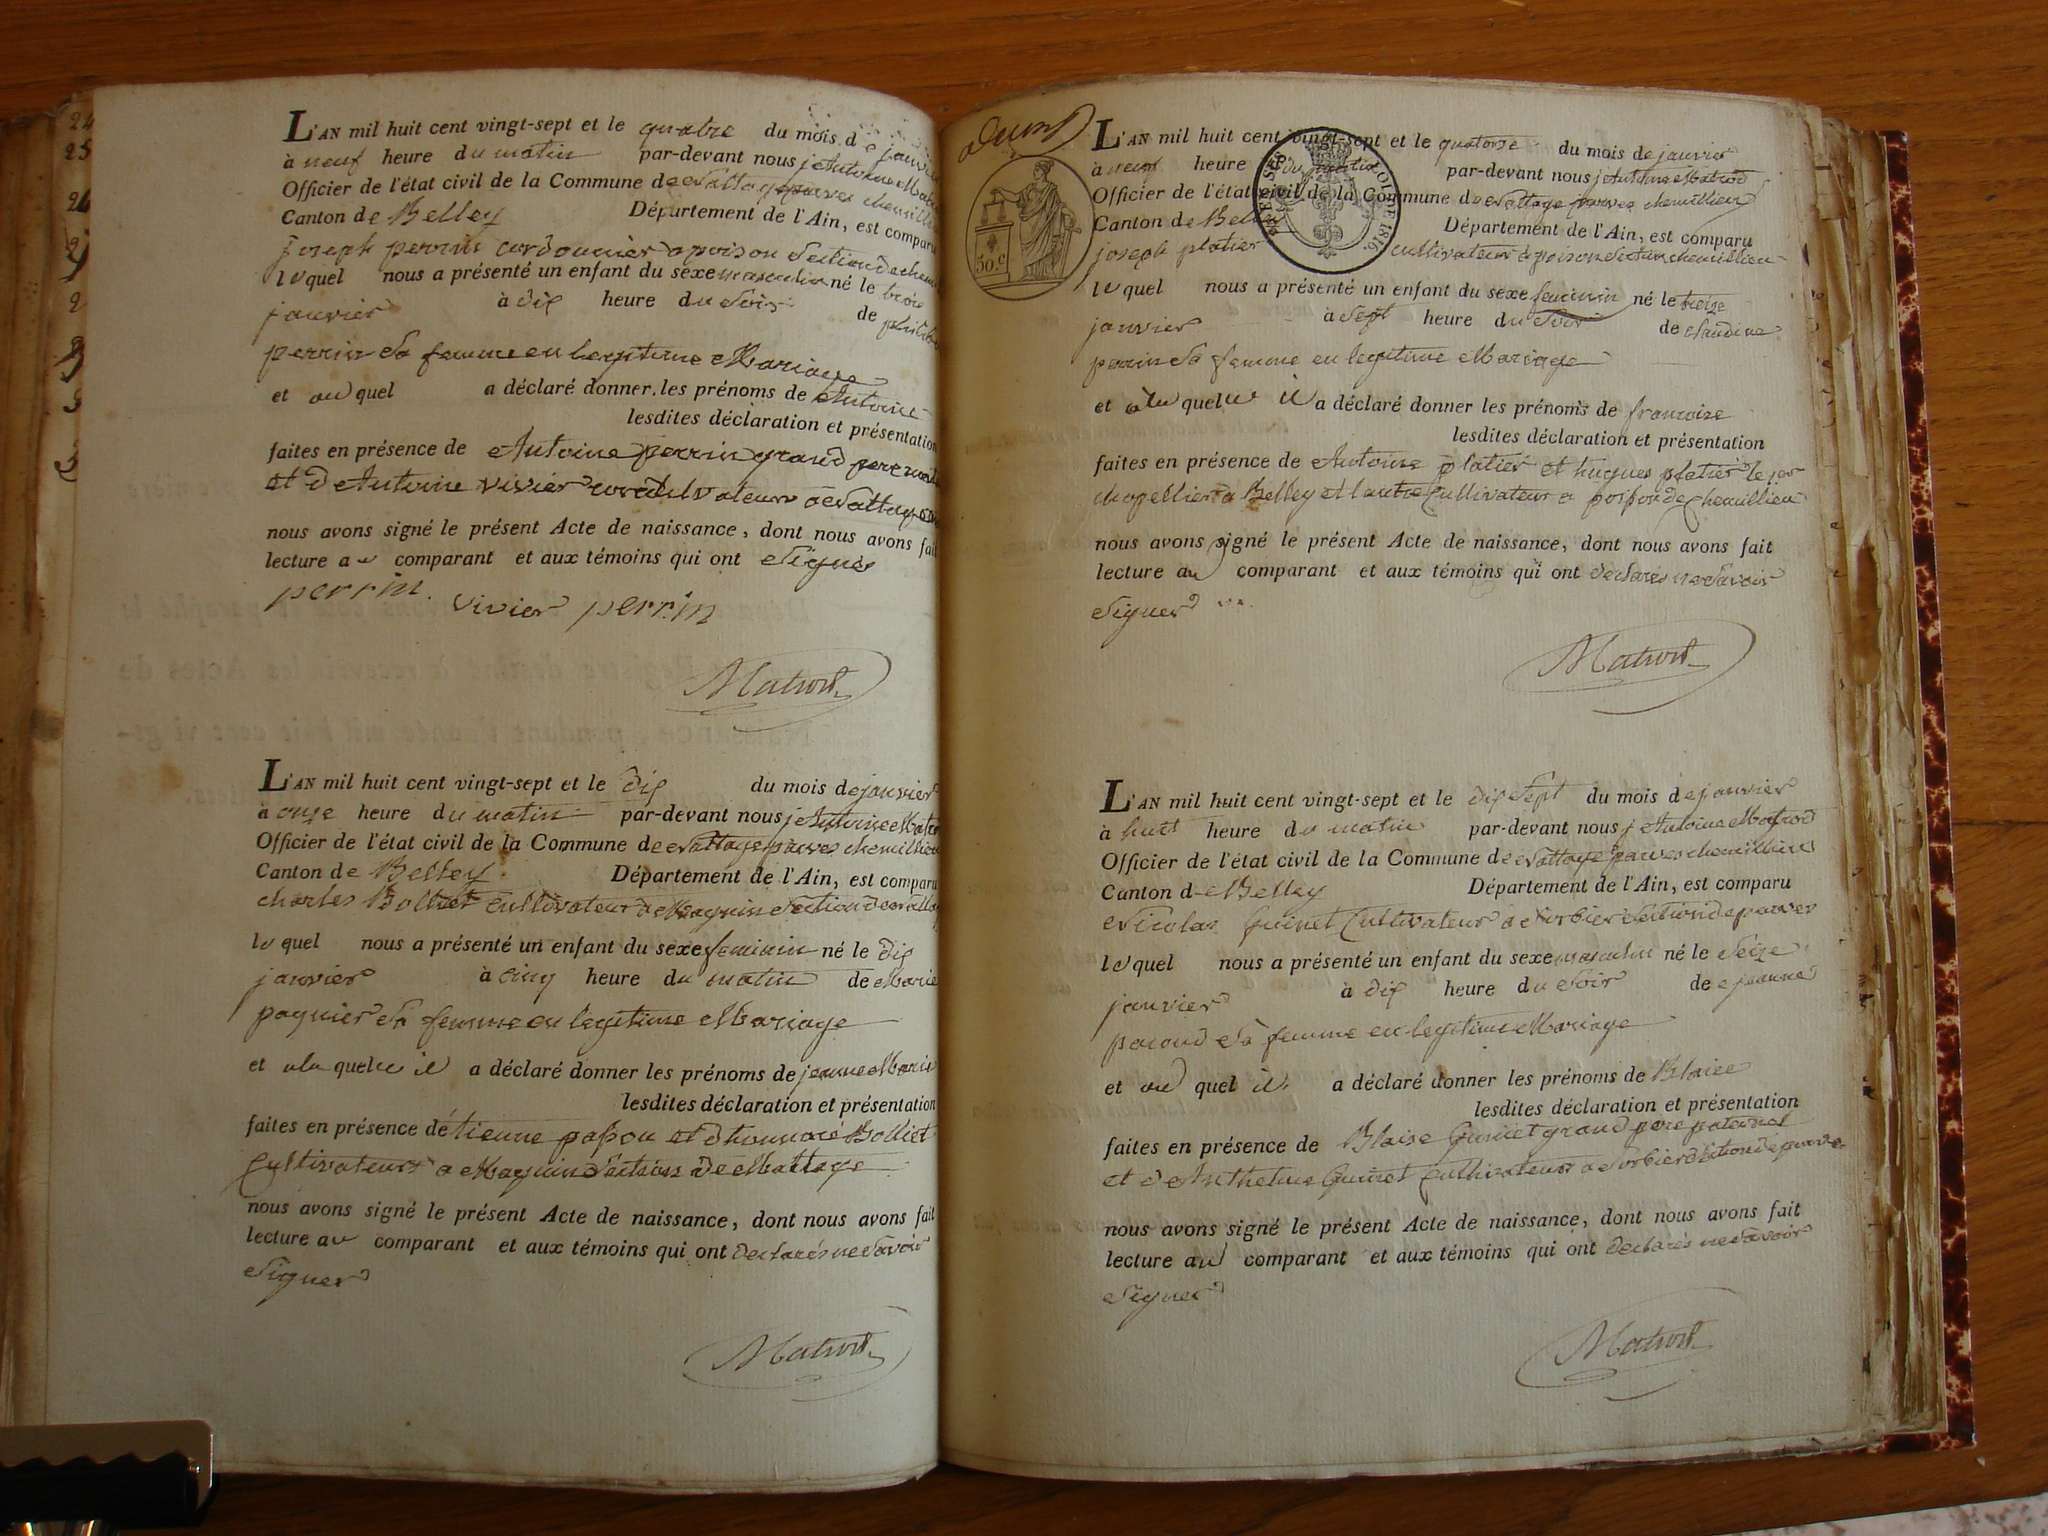 L'AN mil huit cent vingt-sept et le quatre du mois de janvier
à neuf heure du matin par-devant nous j Antoine
Officier de l'état civil de la Commune de parves chemillieu
Canton de Belley Département de l'Ain, est comparu
joseph perrin cordonnier a poison Section de
lequel nous a présenté un enfant du sexe masculin né le trois
janvier à dix heure du Soir de
perrin Sa femme en legitime Mariage
et au quel a déclaré donner les prénoms de Antoine
lesdites déclaration et présentation
faites en présence de Antoine perrin grand pere
et d Antoine vivier
nous avons signé le présent Acte de naissance, dont nous avons fait
lecture au comparant et aux témoins qui ont Signés
perrin. vivier perrin
Matrod
L'AN mil huit cent vingt-sept et le dix du mois de janvier
à onze heure du matin par-devant nous j Antoine
Officier de l'état civil de la Commune de parves chemillieu
Canton de Belley Département de l'Ain, est comparu
charles Bolliet Cultivateur de Magnin Section de
lequel nous a présenté un enfant du sexe feminin né le dix
janvier à cinq heure du matin de Marie
pognier Sa femme en legitime Mariage
et a la quelle il a déclaré donner les prénoms de jeanne Marie
lesdites déclaration et présentation
faites en présence détienne et d honnoré Bolliet
Cultivateurs a Magnin Section de Mattage
nous avons signé le présent Acte de naissance, dont nous avons fait
lecture au comparant et aux témoins qui ont declarés ne Savoir
Signer
Matrod
50.C
L'AN mil huit cent vingt-sept et le quatorse du mois de janvier
à neuf heure du matin par-devant nous j Antoine Matrod
Officier de l'état civil de la Commune de parves chemillieu
Canton de Belley Département de l'Ain, est comparu
joseph platier cultivateur a poison Section chemillieu
lequel nous a présenté un enfant du sexe feminin né le treize
janvier à Sept heure du Soir de Claudine
perrin Sa femme en legitime Mariage
et a la quelle il a déclaré donner les prénoms de francoise
lesdites déclaration et présentation
faites en présence de Antoine platier et hugues platier le 1er
chapellier a Belley et l autre Cultivateur a de Chemillieu
nous avons signé le présent Acte de naissance, dont nous avons fait
lecture au comparant et aux témoins qui ont declarés ne Savoir
Signer
Matrod
L'AN mil huit cent vingt-sept et le dix Sept du mois de janvier
à huit heure du matin par-devant nous j Antoine Matrod
Officier de l'état civil de la Commune de parves chemillieu
Canton de Belley Département de l'Ain, est comparu
Nicolas Guinet Cultivateur a Sorbier Section de parves
lequel nous a présenté un enfant du sexe masculin né le Seize
janvier à dix heure du Soir de jeanne
Sa femme en legitime Mariage
et au quel il a déclaré donner les prénoms de Blaise
lesdites déclaration et présentation
faites en présence de Blaise Guinet grand pere paternel
et d Anthelme Guinet Cultivateur a Sorbier Section de parves
nous avons signé le présent Acte de naissance, dont nous avons fait
lecture au comparant et aux témoins qui ont declarés ne Savoir
Signer
Matrod